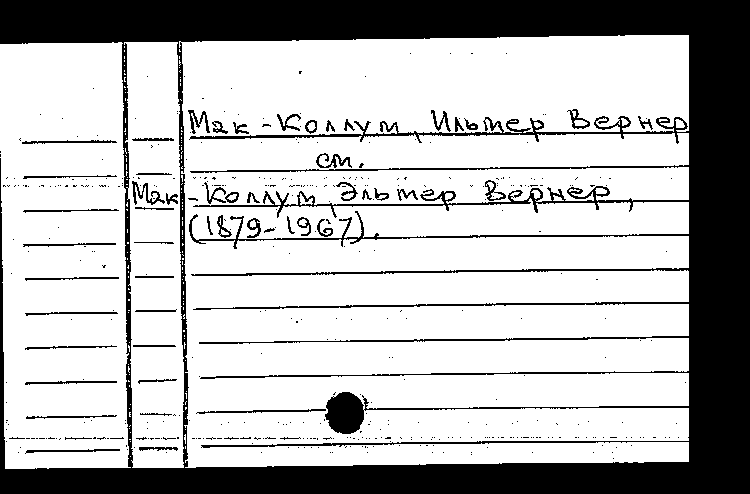 Мак-Коллум, Ильмер Вернер
см.
Мак-Коллум, Эльмер Вернер,
(1879-1967).